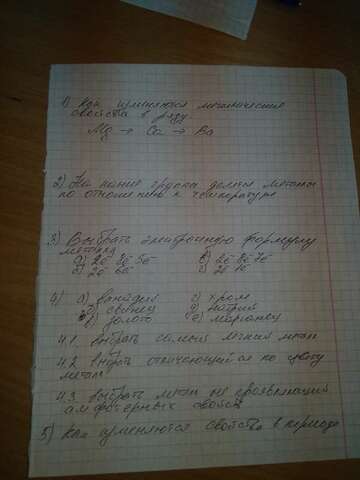 1) Как изменяются металлические
свойства в ряду
Mg → Ca → Ba
2) На какие группы делят металлы
по отношению к температуре
3) Выбрать электронную формулу
металла
а) 2ē 8ē 5ē в) 2ē 8ē 7ē
б) 2ē 6ē г) 2ē 1ē
4) а) ванадий г) хром
б) свинец д) натрий
в) золото е) марганец
4.1. выбрать самый легкий метал
4.2 выбрать отличающийся по цвету
метал
4.3 выбрать метал не проявляющий
амфотерных свойств
5) Как изменяются свойства в периоде